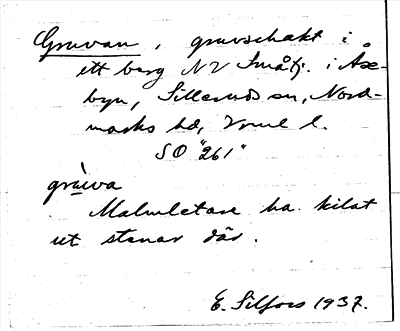 Gruvan, gruvschakt i
ett berg NV Småtj. i Åse-
byn, Sillerud sn, Nord-
marks hd, Vrml l.
SO "261"
grùva
Malmletare ha kilat
ut stenar där.
E. Silfors 1937.